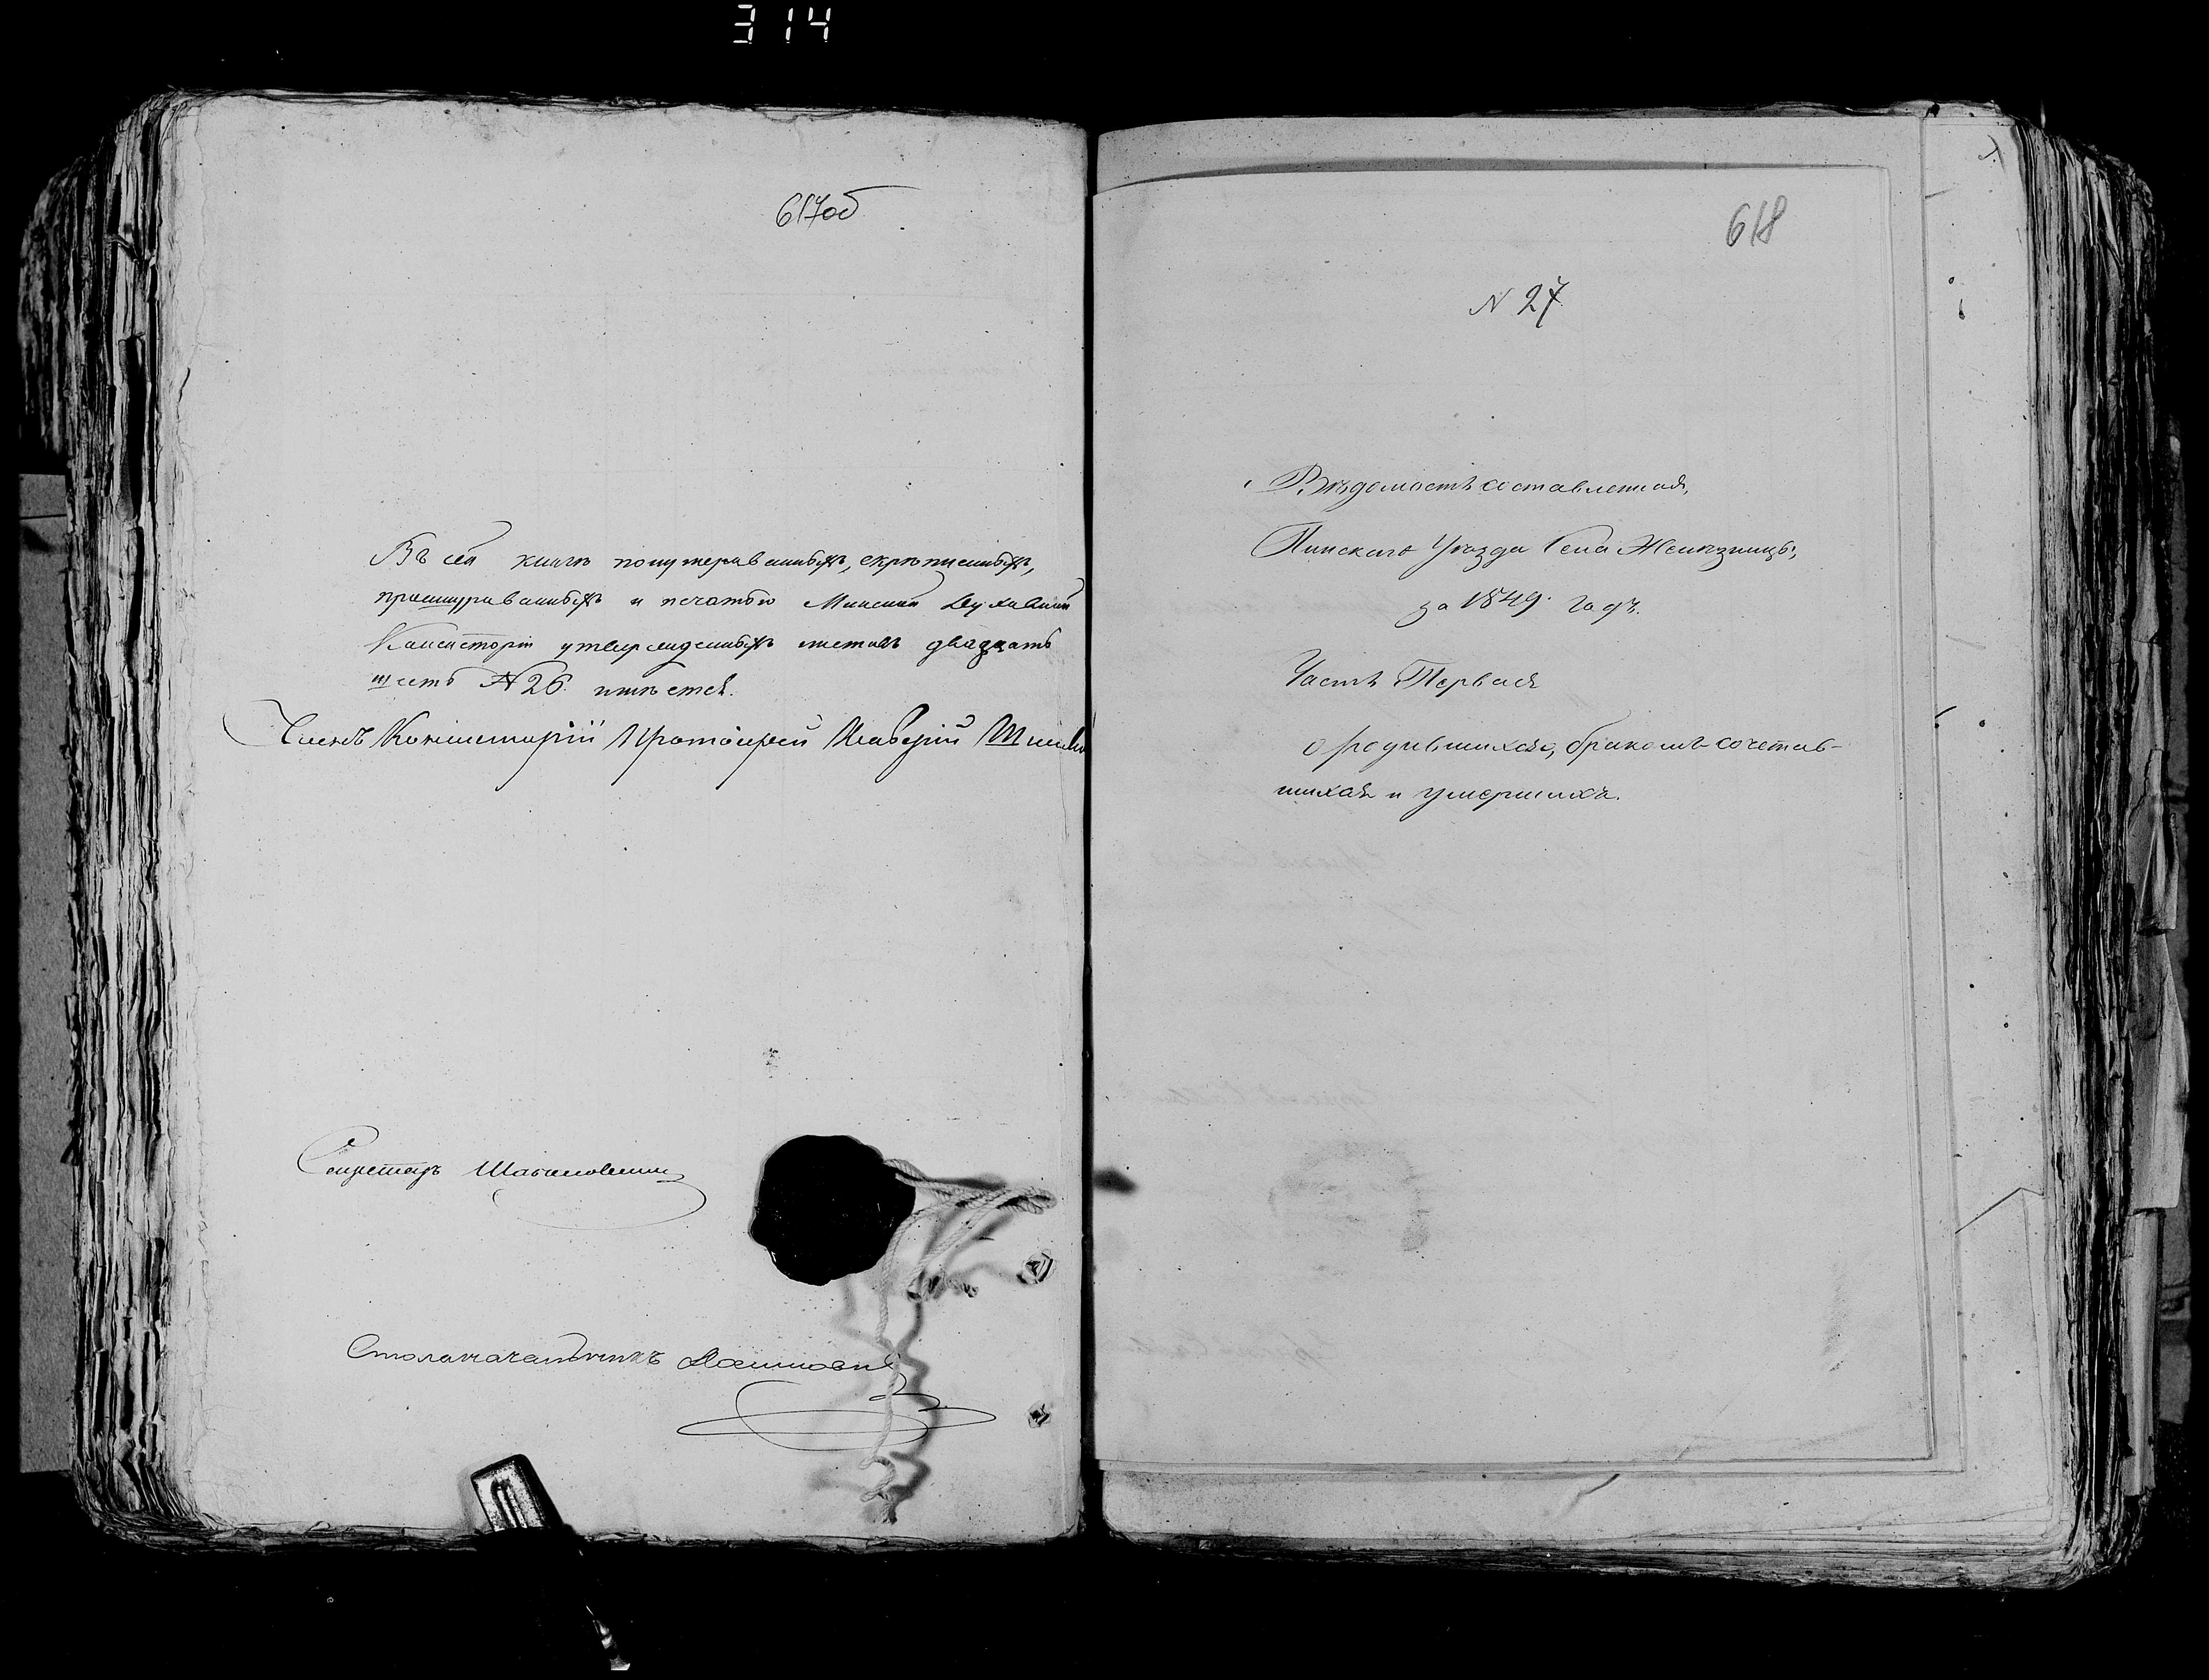 314
617об
Въ сей книгѣ понумерованныхъ, скрѣпленныхъ,
прошнурованныхъ и печатью Минской Духовной
Консисторіи утвержденныхъ листовъ двадцать
шесть № 26. имѣется.
Членъ Консисторіи Протоіерей
Секретарь
Столоначальникъ
618
N 27
Вѣдомость составленная,
Пинскаго Уѣзда Села Желѣзницы,
за 1849. Годъ.
Часть Первая
о родившихся, бракомъ сочетав-
шихся и умершихъ.